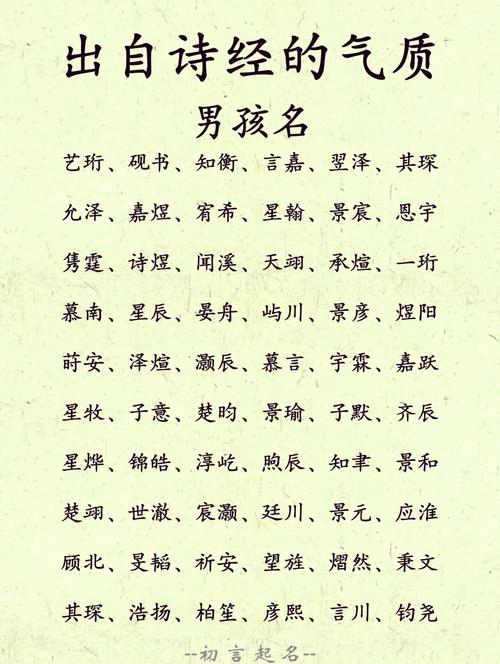 出自诗经的气质
男孩名
艺珩、砚书、知衡、言嘉、翌泽、其琛
允泽、嘉煜、宥希、星翰、景宸、恩宇
隽霆、诗煜、闻溪、天翊、承煊、一珩
慕南、星辰、晏舟、屿川、景彦、煜阳
莳安、泽煊、灏辰、慕言、宇霖、嘉跃
星牧、子意、楚昀、景瑜、子默、齐辰
星烨、锦皓、淳屹、煦辰、知聿、景和
楚翊、世澈、宸灏、廷川、景元、应淮
顾北、旻韬、祈安、望旌、熠然、秉文
其琛、浩扬、柏笙、彦熙、言川、钧尧
--初言起名--